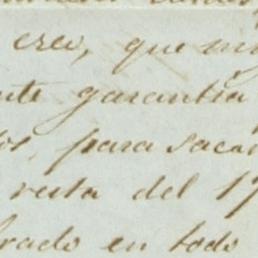 creo, que mi
nte garantia
os, para saca
resta del 17
rado en todo